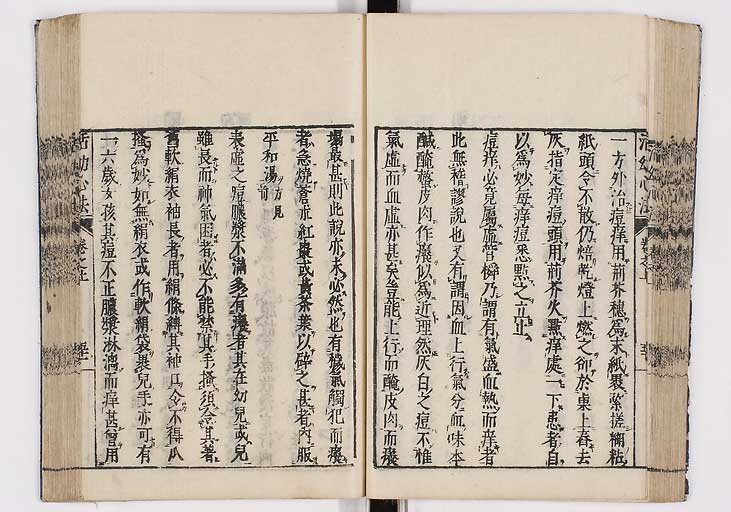 一方外治痘痒用荊芥穗爲末紙裹緊搓糊粘
紙頭令不散仍焙乾燈上燃之卻於桌上舂去
灰指定痒痘頭用荊芥火點痒處一下患者自
以爲妙每痒痘悉點之立止
痘痒必竟屬虛管瞬乃謂有氣盛血熱而痒者
此無稽謬說也又有謂因血上行氣分血味本
鹹醃螫皮肉作癢似爲近理然灰白之痘不惟
氣虛而血虛亦甚矣豈能上行而醃皮肉而癢
塌最甚則此說亦未必然也有穢氣觸犯而癢
者急燒蒼朮紅棗或黃茶葉以碎之甚者內服
平和湯方見前
表虛之痘膿漿不滿多有癢者其在幼兒或兒
雖長而神氣困者必不能禁其手搔須令其著
舊軟絹衣袖長者用絹條縛其袖口令不得爪
搔爲妙如無絹衣或作軟絹袋裹兒手亦可有
一六歲女孩其痘不正膿漿淋漓而痒甚曾用
活幼心法
卷之上